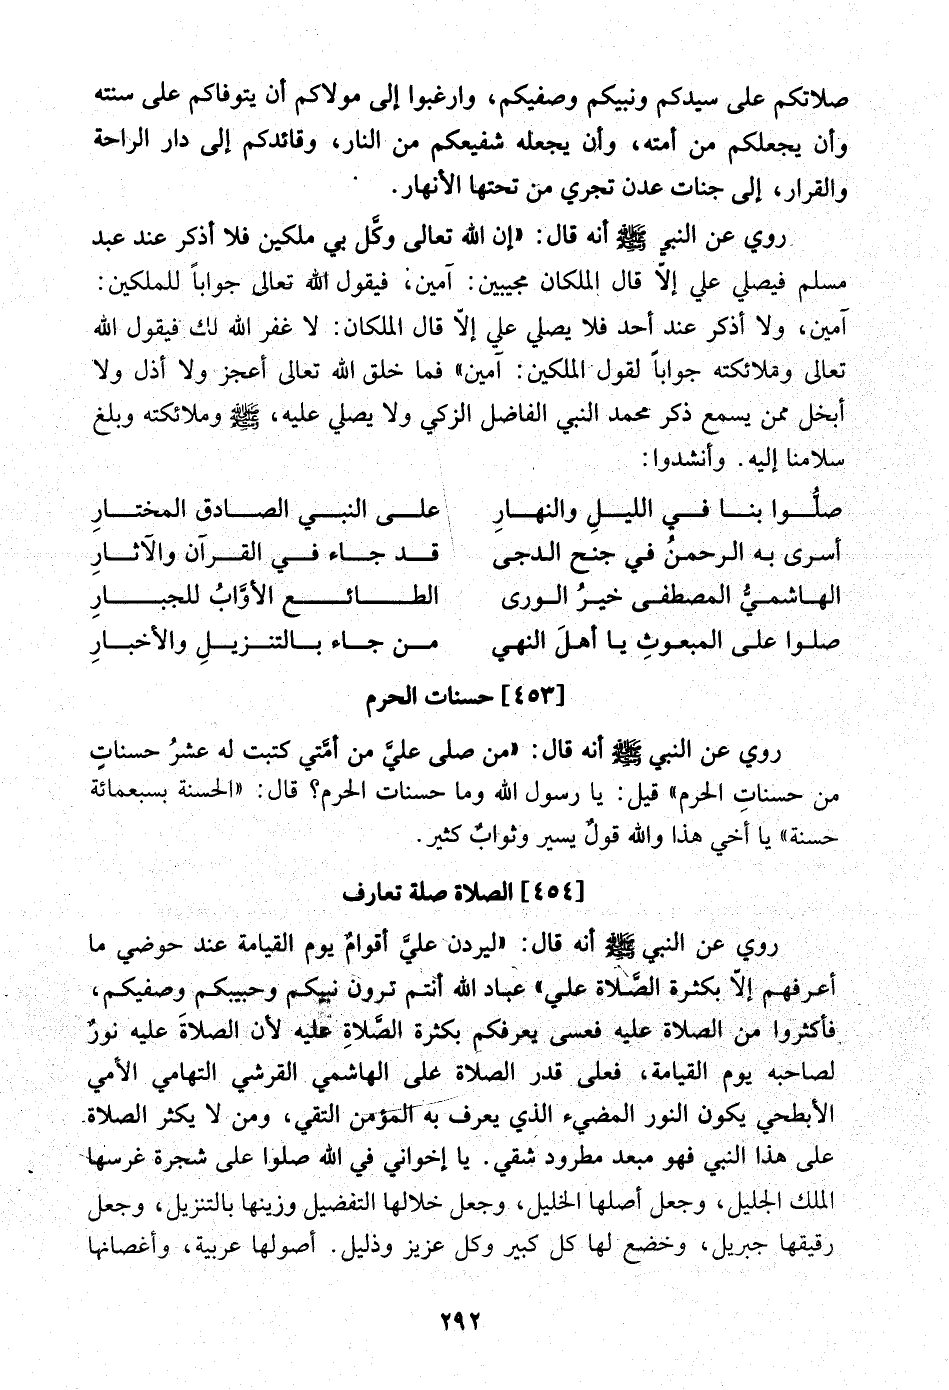 صلاتكم على سيدكم ونبيكم وصفيكم، وارغبوا إلى مولاكم أن يتوفاكم على سنته
وأن يجعلكم من أمته، وأن يجعله شفيعكم من النار، وقائدكم إلى دار الراحة
والقرار، إلى جنات عدن تجري من تحتها الأنهار.
روي عن النبي ﷺ أنه قال: «إن الله تعالى وكَّل بي ملكين فلا أذكر عند عبد
مسلم فيصلي علي إلاّ قال الملكان مجيبين: آمين، فيقول الله تعالى جواباً للملكين:
آمين، ولا أذكر عند أحد فلا يصلي علي إلاّ قال الملكان: لا غفر الله لك فيقول الله
تعالى وملائكته جواباً لقول الملكين: آمين» فما خلق الله تعالى أعجز ولا أذل ولا
أبخل ممن يسمع ذكر محمد النبي الفاضل الزكي ولا يصلي عليه، ﷺ وملائكته وبلغ
سلامنا إليه. وأنشدوا:
صلُّوا بنا في الليلِ والنهارِ على النبي الصادق المختارِ
أسرى به الرحمنُ في جنح الدجى قد جاء في القرآن والآثارِ
الهاشميُّ المصطفى خيرُ الورى الطائع الأوَّابُ للجبارِ
صلوا على المبعوثِ يا أهلَ النهي من جاء بالتنزيلِ والأخبارِ
[٤٥٣] حسنات الحرم
روي عن النبي ﷺ أنه قال: «من صلى عليَّ من أمَّتي كتبت له عشرُ حسناتٍ
من حسناتِ الحرم» قيل: يا رسول الله وما حسنات الحرم؟ قال: «الحسنة بسبعمائة
حسنة» يا أخي هذا والله قولٌ يسير وثوابٌ كثير.
[٤٥٤] الصلاة صلة تعارف
روي عن النبي ﷺ أنه قال: «ليردن عليَّ أقوامٌ يوم القيامة عند حوضي ما
أعرفهم إلاّ بكثرة الصَّلاة علي» عباد الله أنتم ترون نبيكم وحبيبكم وصفيكم،
فأكثروا من الصلاة عليه فعسى يعرفكم بكثرة الصَّلاةِ عليه لأن الصلاةَ عليه نورٌ
لصاحبه يوم القيامة، فعلى قدر الصلاة على الهاشمي القرشي التهامي الأمي
الأبطحي يكون النور المضيء الذي يعرف به المؤمن التقي، ومن لا يكثر الصلاة
على هذا النبي فهو مبعد مطرود شقي. يا إخواني في الله صلوا على شجرة غرسها
الملك الجليل، وجعل أصلها الخليل، وجعل خلالها التفضيل وزينها بالتنزيل، وجعل
رقيقها جبريل، وخضع لها كل كبير وكل عزيز وذليل. أصولها عربية، وأغصانها
٢٩٢